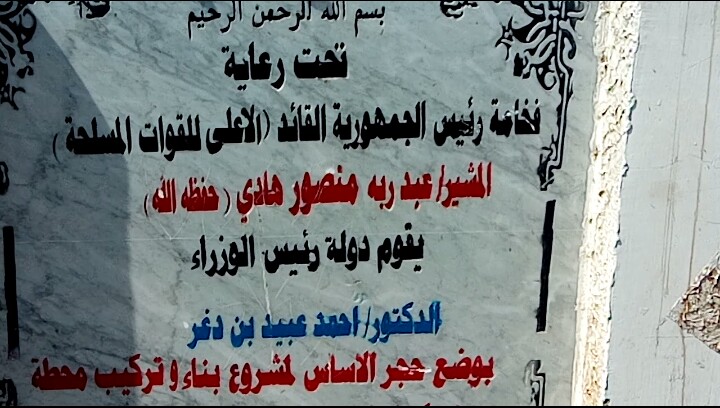 بسم الله الرحمن الرحيم
تحت رعاية
فخامة رئيس الجمهورية القائد (الاعلى للقوات المسلحة)
المشير/ عبد ربه منصور هادي (حفظه الله)
يقوم دولة رئيس الوزراء
الدكتور/ احمد عبيد بن دغر
بوضع حجر الاساس لمشروع بناء و تركيب محطة